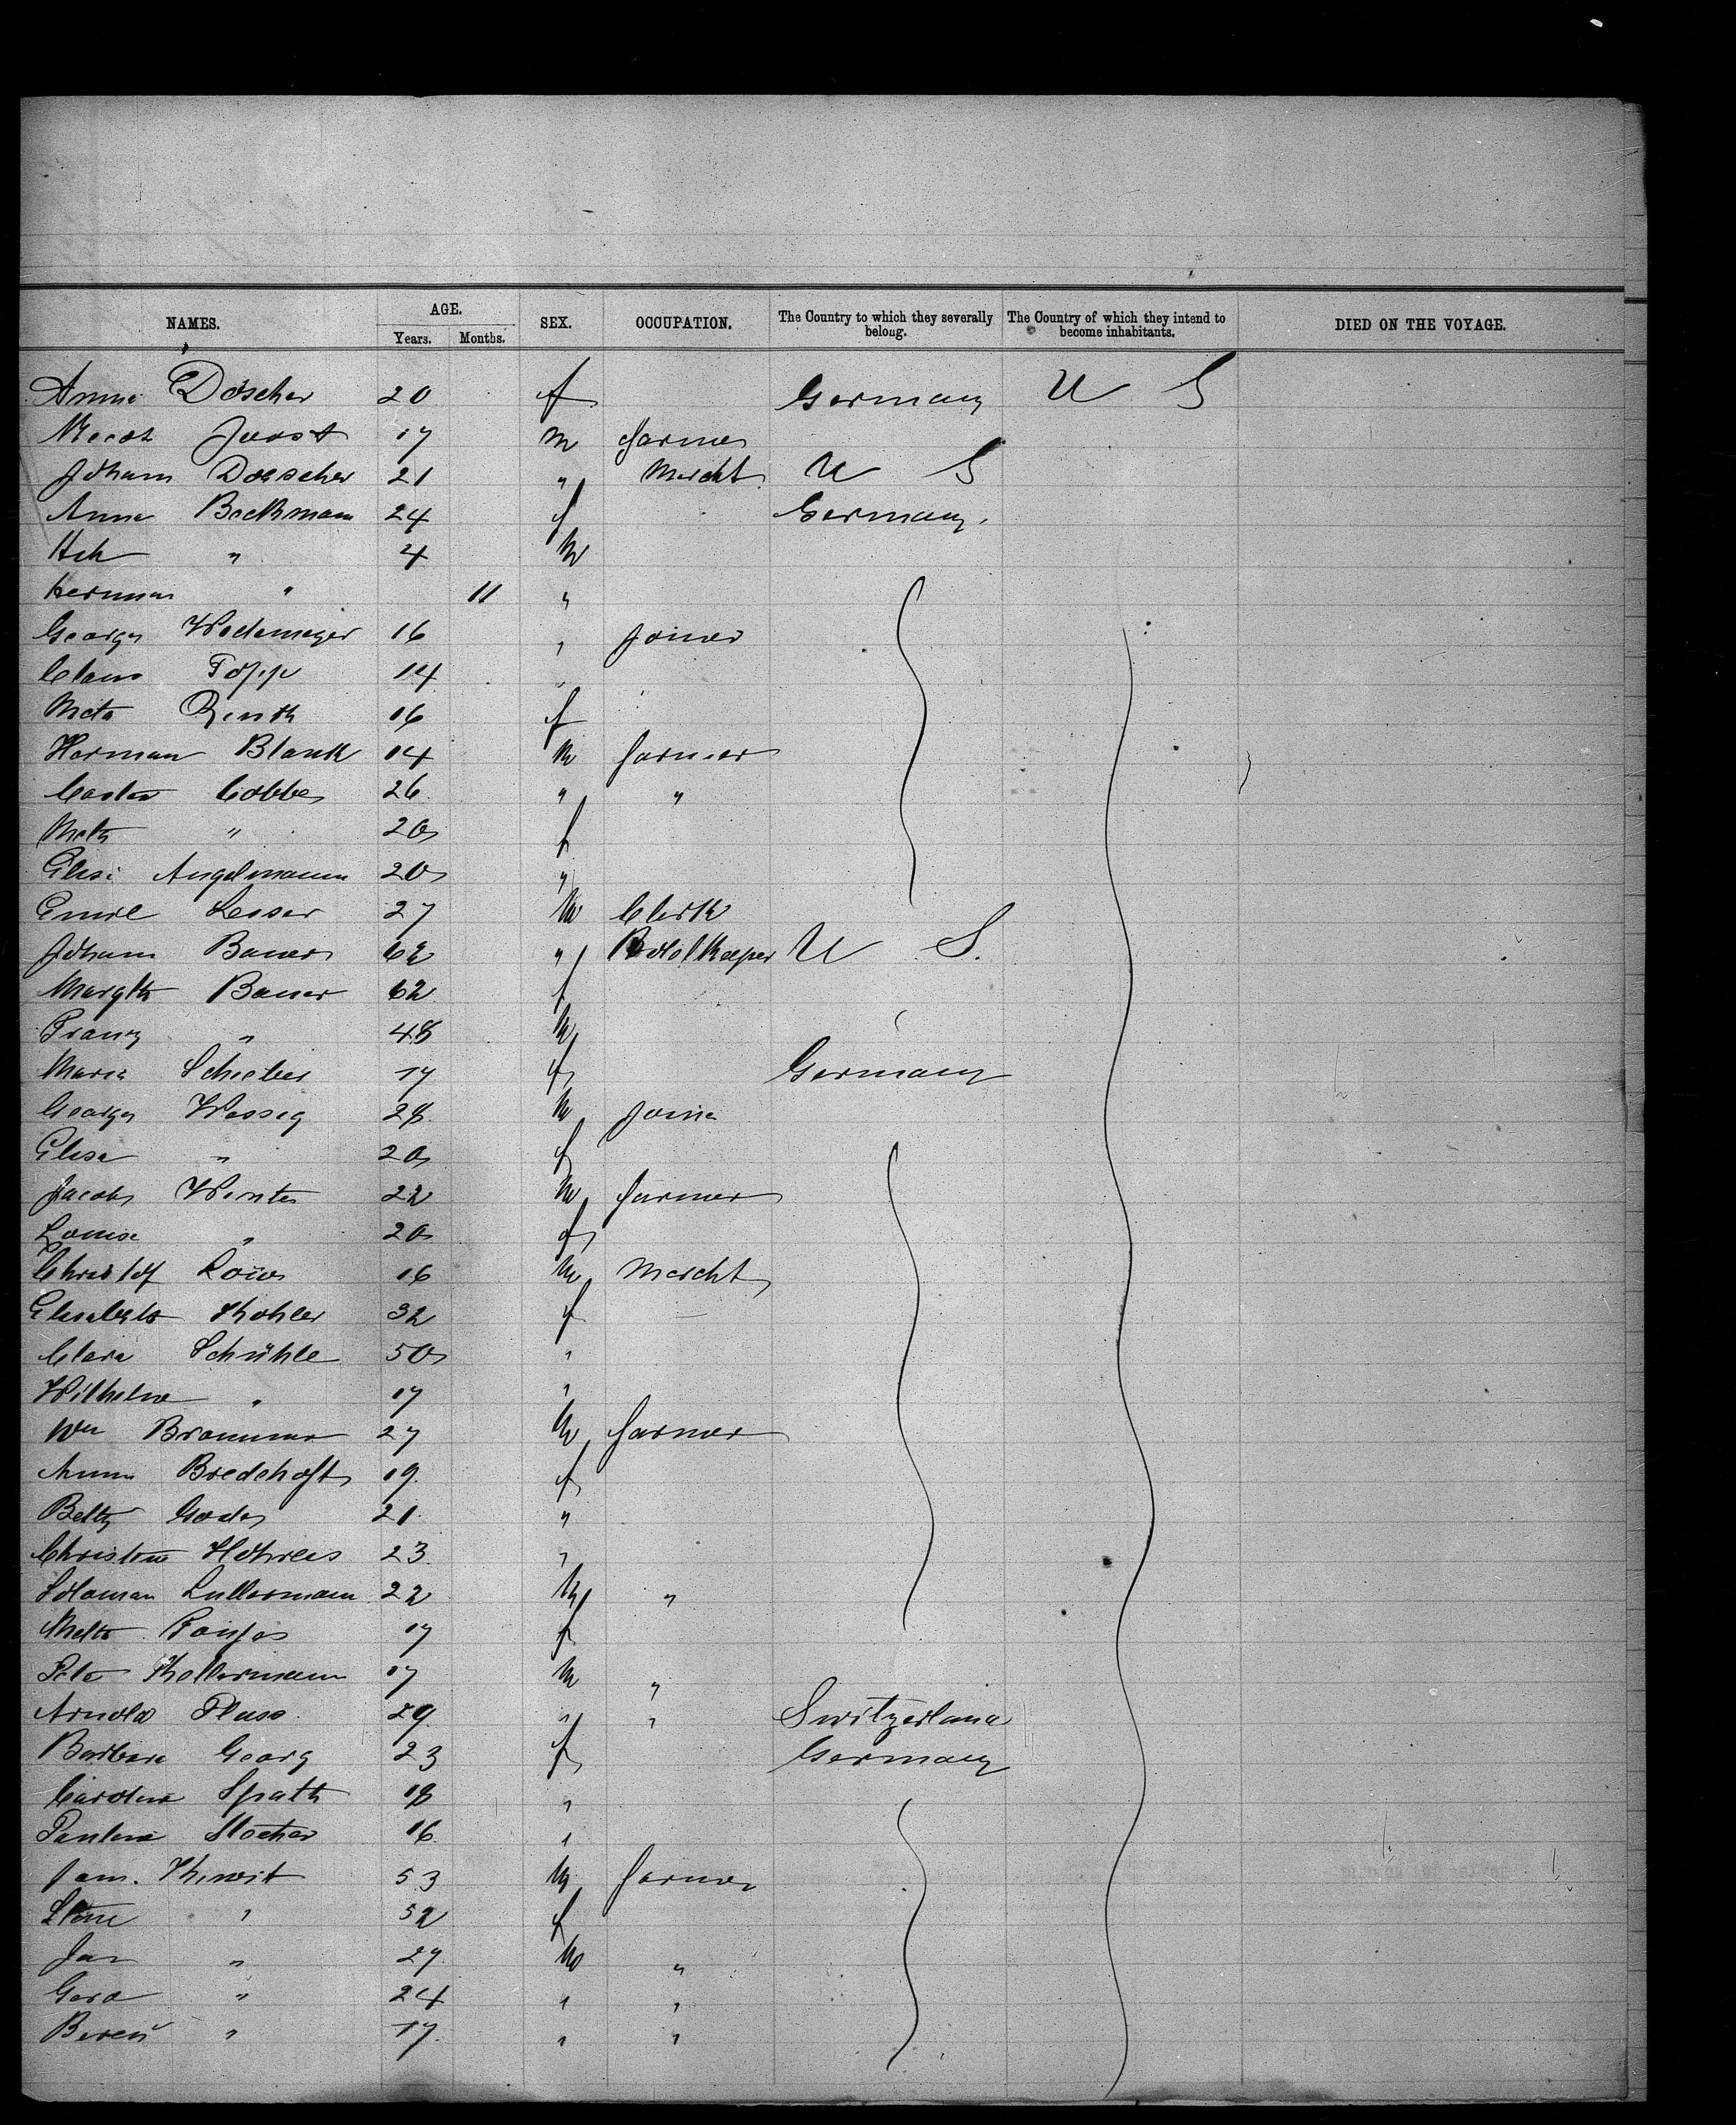 NAMES. AGE. Years. Months. SEX. OCCUPATION. The Country to which they severally belong. The Country of which they intend to become inhabitants. DIED ON THE VOYAGE.
Anna Döscher 20 f Germany U S
Joost 17 m farmer
Johann Doescher 21 " Mercht U S
Anna Beckmann 24 f Germany
Hch " 4 m
Herman " 11 "
George Wedemeyer 16 " Joiner
Claus Topp 14 "
Meta 16 f
Herman Blank 14 m farmer
Carsten Cobbe 26 " "
Meta " 20 f
Elise Angelmann 20 "
Emil Lesser 27 m Clerk
Johann Bauer 62 " U S.
Margth Bauer 62 f
Franz " 48 m
Maria Schieber 17 f Germany
George Wessig 28 m Joine
Elisa " 20 f
Jacob Winter 22 m farmer
Louise " 20 f
Christof Löw 16 m Mercht
Elisabeth Kohler 32 f
Clara Schühle 50 "
Wilhelm " 17 "
Wm Brammer 27 m farmer
Anna Bredehoft 19 f
Betty Goda 21 "
Christine 23 "
Lullermann 22 m "
Meta 17 f
Pete Kellermann 17 m "
Arnold Pluss 29 " " Switzerland
Barbara Georg 23 f Germany
Carolina Spath 18 "
Paulina 16 "
Jam. 53 m farmer
" 52 f
Jan " 29 m "
Gerd " 24 " "
" 17 " "